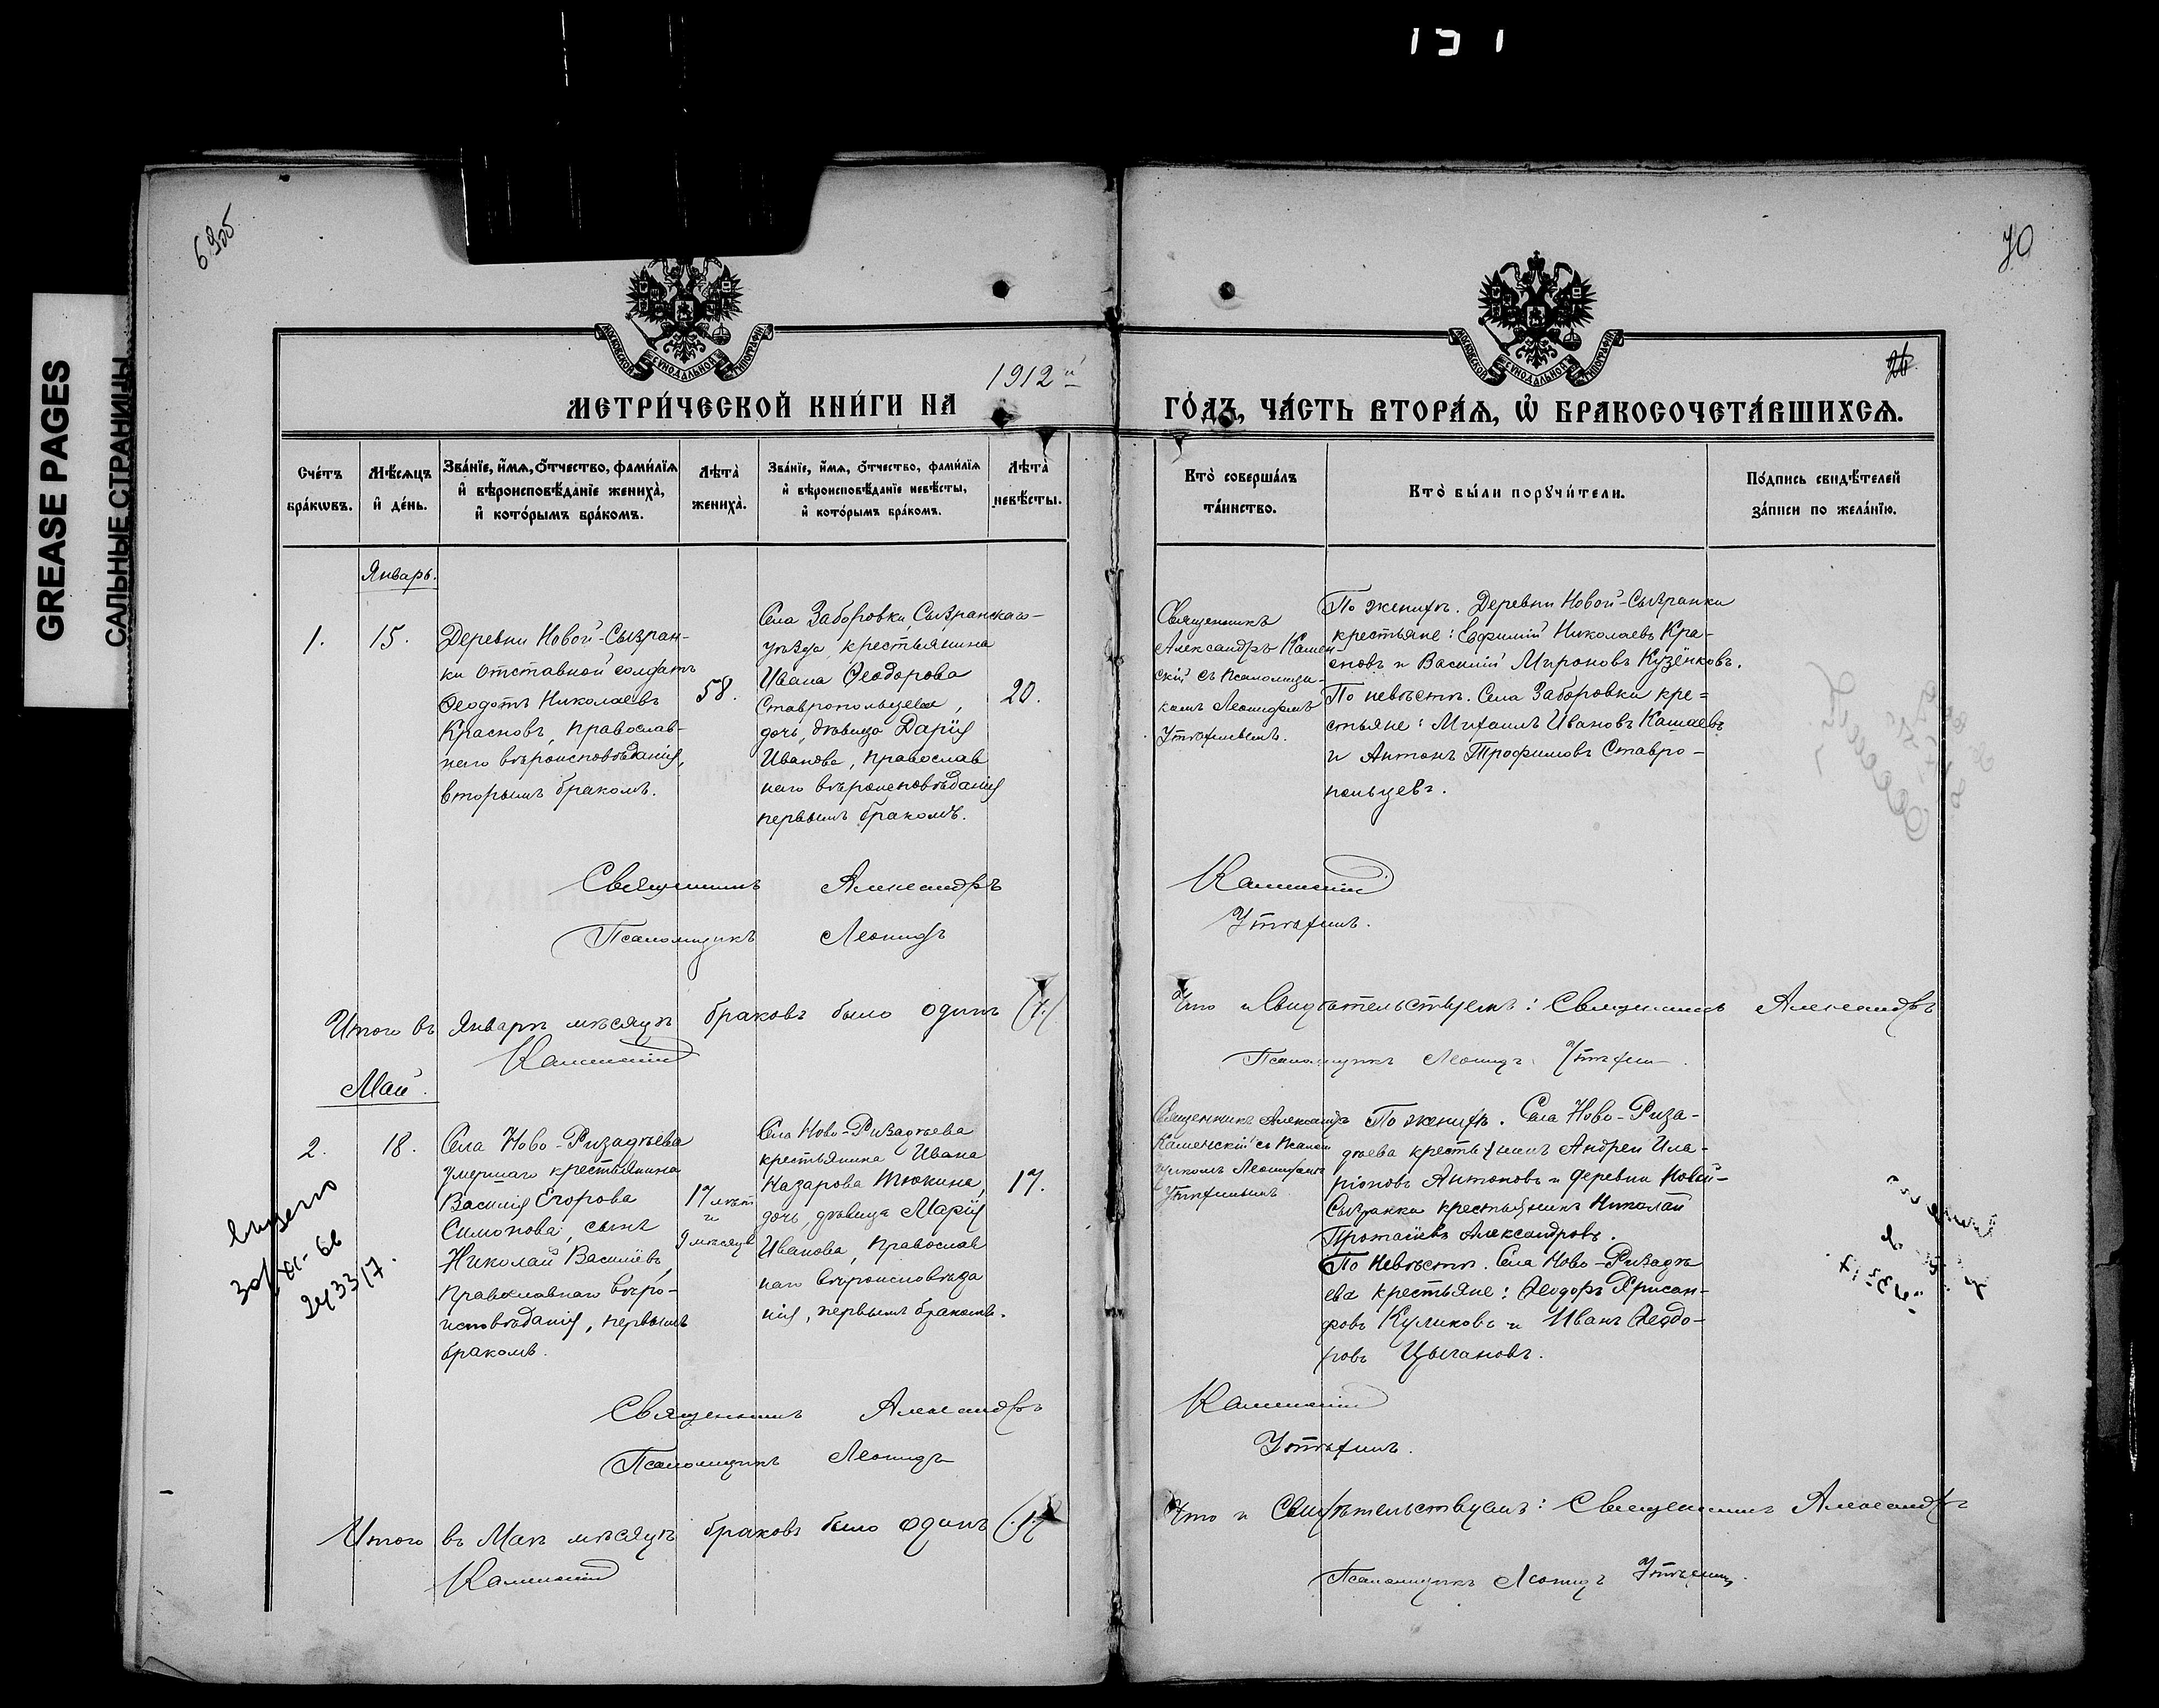 151
GREASE PAGES
САЛЬНЫЕ СТРАНИЦЫ
70
МОСКОВСКОЙ СѴНОДАЛЬНОЙ ТИПОГРАФІИ
МОСКОВСКОЙ СѴНОДАЛЬНОЙ ТИПОГРАФІИ
26
1912й
МЕТРИ́ЧЕСКОЙ КНИ́ГИ НА
ГО́ДЪ, ЧА́СТЬ ВТОРА́Ѧ, Ѡ҆ БРАКОСОЧЕТА́ВШИХСѦ.
Сче́тъ
бра́кѡвъ.
Мѣ́сѧцъ
и҆ де́нь.
Зва́нїе, и҆́мѧ, ѻ҆́тчество, фами́лїѧ
и҆ вѣроисповѣ́данїе жениха̀,
и҆ кото́рымъ бра́комъ.
Лѣта̀
жениха̀.
Зва́нїе, и҆́мѧ, ѻ҆́тчество, фами́лїѧ
и҆ вѣроисповѣ́данїе невѣ́сты,
и҆ кото́рымъ бра́комъ.
Лѣта̀
невѣ́сты.
Кто̀ соверша́лъ
та́инство.
Кто̀ бы́ли порꙋчи́тели.
По́дпись свидѣ́телей
за́писи по жела́нїю.
Январь.
1.
15.
Деревни Новой-Сызран-
ки отставной солдатъ
Ѳеодотъ Николаевъ
Красновъ, православ-
наго вѣроисповѣданія,
вторымъ бракомъ.
58.
Села Заборовки, Сызранскаго
уѣзда, крестьянина
Ивана Ѳеодорова
Ставропольцева,
дочь, дѣвица Дарія
Иванова, православ
наго вѣроисповѣданія
первымъ бракомъ.
20.
Священникъ
Александръ Камен-
скій съ псаломщи-
комъ Леонидомъ
Утѣхинымъ.
По женихѣ. Деревни Новой-Сызранки
крестьяне: Евфимій Николаевъ Кра-
сновъ и Василій Мироновъ Кузёнковъ.
По невѣстѣ. Села Заборовки кре=
стьяне: Михаилъ Ивановъ Кашаевъ
и Антонъ Трофимовъ Ставро-
польцевъ.
Священникъ Александръ Каменскій
Псаломщикъ Леонидъ Утѣхинъ.
Итого въ Январѣ мѣсяцѣ браковъ было одинъ (1.) Что и свидѣтельствуемъ: Священникъ Александръ
Каменскій Псаломщикъ Леонидъ Утѣхинъ.
Май.
2.
18.
Села Ново-Ризадѣева
умершаго крестьянина
Василія Егорова
Симонова, сынъ
Николай Васильевъ,
православнаго вѣро-
исповѣданія, первымъ
бракомъ.
17 лѣтъ
и
9 мѣсяцевъ
Села Ново-Ризадѣева
крестьянина Ивана
Назарова Тюкина,
дочь, дѣвица Марія
Иванова, православ
наго вѣроисповѣда
нія, первымъ бракомъ.
17.
Священникъ Александръ
Каменскій съ псалом
щикомъ Леонидомъ
Утѣхинымъ.
По женихѣ. Села Ново-Риза-
дѣева крестьянинъ Андрей Ила-
ріоновъ Антоновъ и деревни Новой-
Сызранки крестьянинъ Николай
Протасіевъ Александровъ.
По невѣстѣ. Села Ново-Ризадѣ
ева крестьяне: Ѳеодоръ Хрисан-
фовъ Куликовъ и Иванъ Ѳеодо-
ровъ Цыгановъ.
Священникъ Александръ Каменскій
Псаломщикъ Леонидъ Утѣхинъ.
Итого въ Маѣ мѣсяцѣ браковъ было одинъ (1) Что и свидѣтельствуемъ: Священникъ Александръ
Каменскій Псаломщикъ Леонидъ Утѣхинъ.